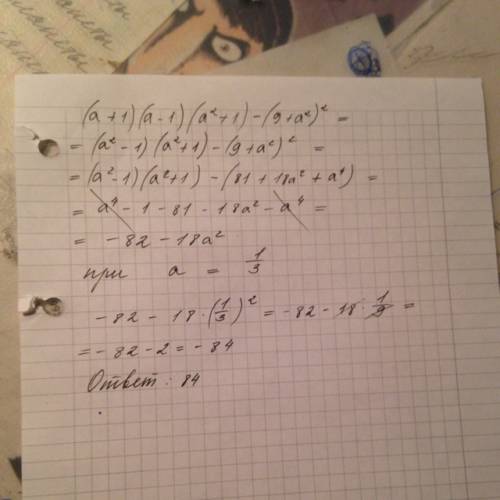 (a+1)(a-1)(a²+1)-(9+a²)² =
= (a²-1)(a²+1)-(9+a²)² =
= (a²-1)(a²+1) - (81+18a²+a⁴) =
= a⁴ - 1 - 81 - 18a² - a⁴ =
= -82 - 18a²
при a = 1/3
-82 - 18·(1/3)² = -82 - 18·1/9 =
= -82 - 2 = -84
Ответ: 84